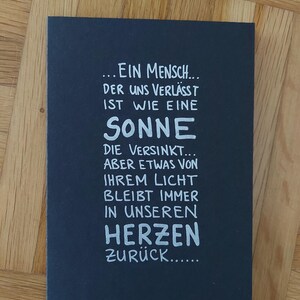 ...EIN MENSCH...
DER UNS VERLÄSST
IST WIE EINE
SONNE
DIE VERSINKT...
ABER ETWAS VON
IHREM LICHT
BLEIBT IMMER
IN UNSEREN
HERZEN
ZURÜCK......